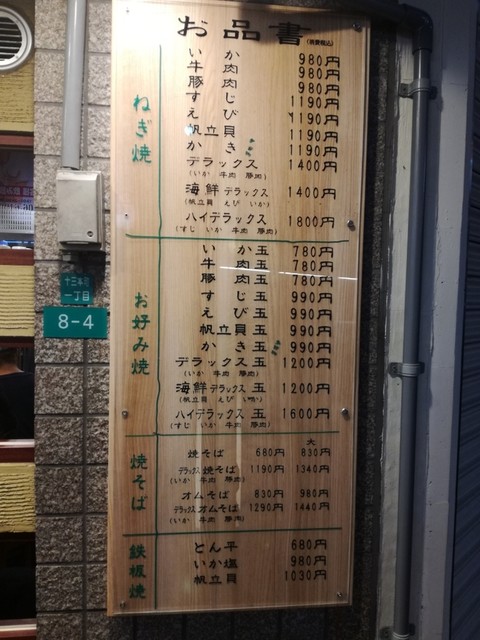 お品書(消費税込)
ねぎ焼
いか 980円
牛肉 980円
豚肉 980円
すじ 1190円
えび 1190円
帆立貝 1190円
かき 1190円
デラックス 1400円
(いか 牛肉 豚肉)
海鮮デラックス 1400円
(帆立貝 えび いか)
ハイデラックス 1800円
(すじ いか 牛肉 豚肉)
お好み焼
いか玉 780円
牛肉玉 780円
豚肉玉 780円
すじ玉 990円
えび玉 990円
帆立貝玉 990円
かき玉 990円
デラックス玉 1200円
(いか 牛肉 豚肉)
海鮮デラックス玉 1200円
(帆立貝 えび いか)
ハイデラックス玉 1600円
(すじ いか 牛肉 豚肉)
焼そば
大
焼そば 680円 830円
デラックス焼そば 1190円 1340円
(いか 牛肉 豚肉)
オムそば 830円 980円
デラックスオムそば 1290円 1440円
(いか 牛肉 豚肉)
鉄板焼
とん平 680円
いか塩 980円
帆立貝 1030円
十三本町
一丁目
8-4